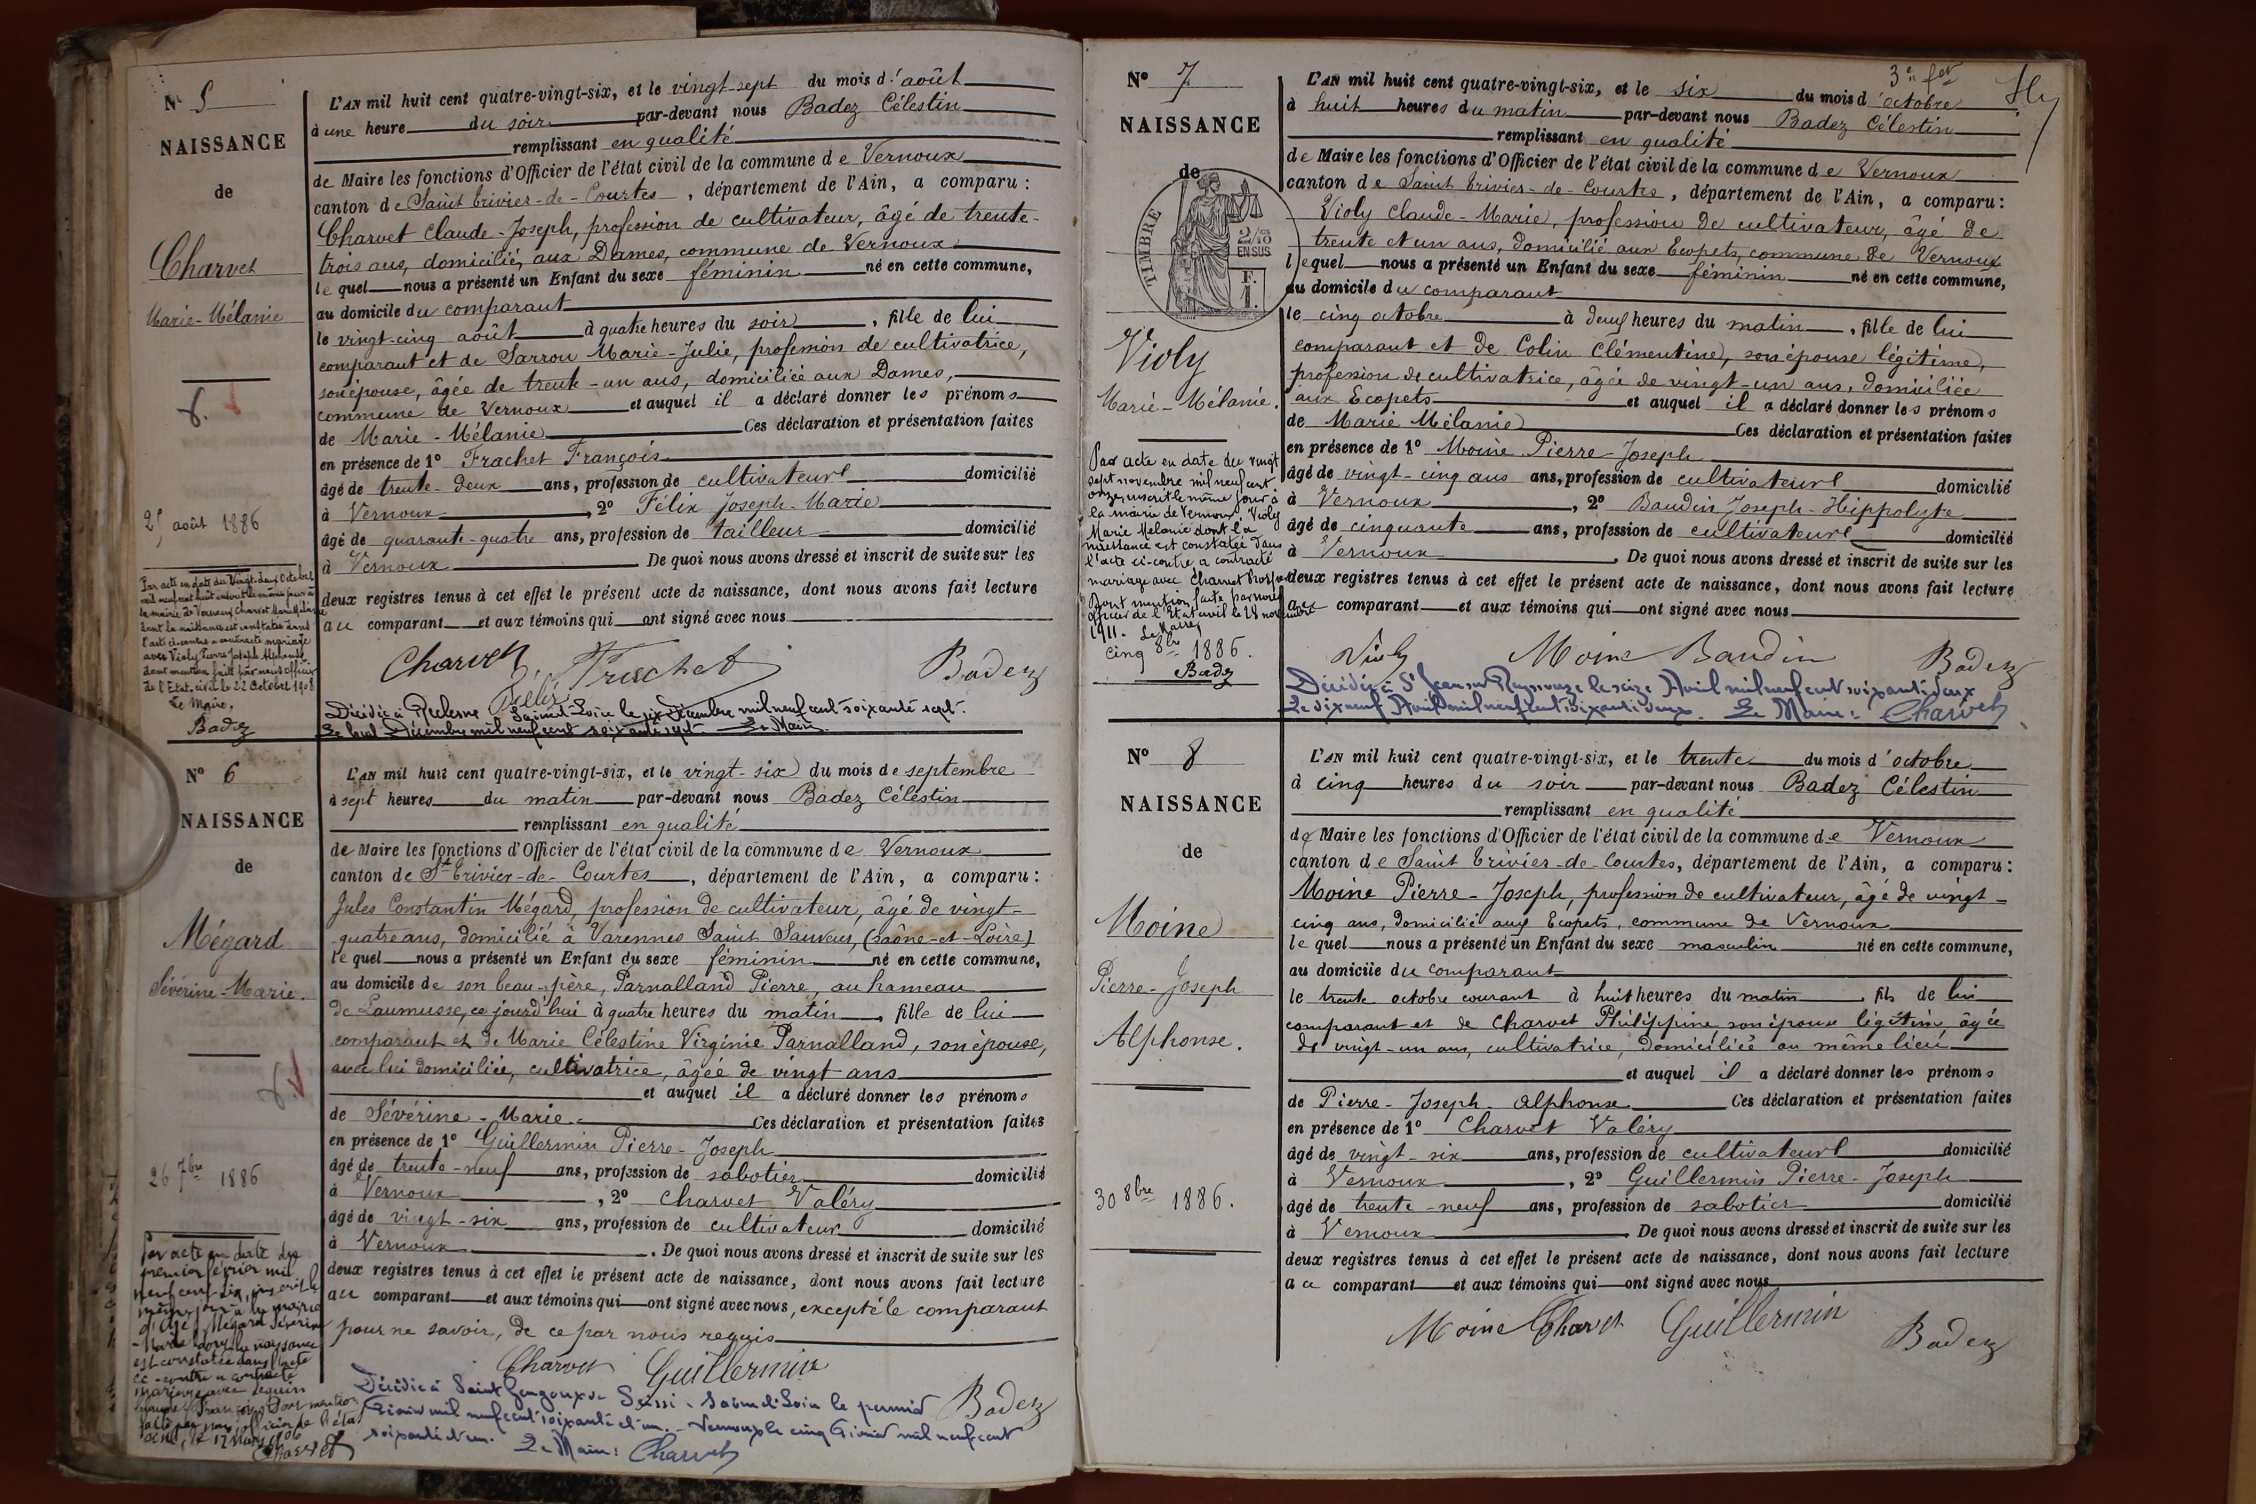 N° 5
NAISSANCE
de
Charvet
Marie-Mélanie
25 août 1886
Par acte en date du vingt-deux Octobre
mil neuf cent huit inscrit le même jour à
la mairie de Vernoux Charvet Marie Mélanie
dont la naissance est constatée dans
l'acte ci-contre a contracté mariage
avec Violy Pierre Joseph Alphonse
dont mention faite par nous officier
de l'Etat civil le 22 Octobre 1908
Le Maire,
Badez
L'AN mil huit cent quatre-vingt-six, et le vingt-sept du mois d'août
à une heure du soir par-devant nous Badez Célestin
remplissant en qualité
de Maire les fonctions d'Officier de l'état civil de la commune de Vernoux
canton de Saint Trivier-de-Courtes, département de l'Ain, a comparu :
Charvet Claude-Joseph, profession de cultivateur, âgé de trente-
trois ans, domicilié aux Dames, commune de Vernoux
lequel nous a présenté un Enfant du sexe féminin né en cette commune,
au domicile du comparant
le vingt-cinq août à quatre heures du soir, fille de lui
comparant et de Sarron Marie-Julie, profession de cultivatrice,
son épouse, âgée de trente-un ans, domiciliée aux Dames,
commune de Vernoux et auquel il a déclaré donner les prénoms
de Marie-Mélanie Ces déclaration et présentation faites
en présence de 1° Frachet François
âgé de trente-deux ans, profession de cultivateur domicilié
à Vernoux, 2° Félix Joseph-Marie
âgé de quarante-quatre ans, profession de tailleur domicilié
à Vernoux. De quoi nous avons dressé et inscrit de suite sur les
deux registres tenus à cet effet le présent acte de naissance, dont nous avons fait lecture
au comparant et aux témoins qui ont signé avec nous
Charvet Frachet Badez
Félix
Décédée à Saône-et-Loire le six Décembre mil neuf cent soixante sept.
Le huit Décembre mil neuf cent soixante sept Le Maire
N° 6
NAISSANCE
de
Mégard
Séverine-Marie.
26 7bre 1886
Par acte en date du
premier février mil
neuf cent six, inscrit le
même jour à la mairie
Mégard Séverine
-Marie dont la naissance
est constatée dans l'acte
ci-contre a contracté
mariage avec
François Dont mention
faite par nous officier de l'état
civil, le 12 Mars 1906
Charvet
L'AN mil huit cent quatre-vingt-six, et le vingt-six du mois de septembre
à sept heures du matin par-devant nous Badez Célestin
remplissant en qualité
de Maire les fonctions d'Officier de l'état civil de la commune de Vernoux
canton de St Trivier-de-Courtes, département de l'Ain, a comparu :
Jules Constantin Mégard, profession de cultivateur, âgé de vingt-
quatre ans, domicilié à Varennes Saint Sauveur, (Saône-et-Loire)
lequel nous a présenté un Enfant du sexe féminin né en cette commune,
au domicile de son beau-père, Parnalland Pierre, au hameau
de Laumusse, ce jourd'hui à quatre heures du matin, fille de lui
comparant et de Marie Célestine Virginie Parnalland, son épouse,
avec lui domiciliée, cultivatrice, âgée de vingt ans
et auquel il a déclaré donner les prénoms
de Séverine-Marie. Ces déclaration et présentation faites
en présence de 1° Guillermin Pierre-Joseph
âgé de trente-neuf ans, profession de sabotier domicilié
à Vernoux, 2° Charvet Valéry
âgé de vingt-six ans, profession de cultivateur domicilié
à Vernoux. De quoi nous avons dressé et inscrit de suite sur les
deux registres tenus à cet effet le présent acte de naissance, dont nous avons fait lecture
au comparant et aux témoins qui ont signé avec nous, excepté le comparant
pour ne savoir, de ce par nous requis
Charvet Guillermin
Badez
Décédée à Saint Gengoux de Scissé Saône et Loire le premier
Février mil neuf cent soixante et un. Vernoux le cinq Février mil neuf cent
soixante et un. Le Maire : Charvet
N° 7
NAISSANCE
de
TIMBRE
2/10
EN SUS
F.
1.
Violy
Marie-Mélanie.
Par acte en date du vingt
sept novembre mil neuf cent
onze, inscrit le même jour à
la mairie de Vernoux, Violy
Marie Mélanie dont la
naissance est constatée dans
l'acte ci-contre a contracté
mariage avec Charvet
Dont mention faite par nous
officier de l'Etat civil le 28 novembre
1911. Le Maire,
cinq 8bre 1886.
Badez
3e fer
L'AN mil huit cent quatre-vingt-six, et le six du mois d'octobre
à huit heures du matin par-devant nous Badez Célestin
remplissant en qualité
de Maire les fonctions d'Officier de l'état civil de la commune de Vernoux
canton de Saint Trivier-de-Courtes, département de l'Ain, a comparu :
Violy Claude-Marie, profession de cultivateur, âgé de
trente et un ans, domicilié aux Ecopets, commune de Vernoux
lequel nous a présenté un Enfant du sexe féminin né en cette commune,
au domicile du comparant
le cinq octobre à deux heures du matin, fille de lui
comparant et de Colin Clémentine, son épouse légitime,
profession de cultivatrice, âgée de vingt-un ans, domiciliée
aux Ecopets et auquel il a déclaré donner les prénoms
de Marie Mélanie Ces déclaration et présentation faites
en présence de 1° Moine Pierre-Joseph
âgé de vingt-cinq ans ans, profession de cultivateur domicilié
à Vernoux, 2° Baudin Joseph-Hippolyte
âgé de cinquante ans, profession de cultivateur domicilié
à Vernoux. De quoi nous avons dressé et inscrit de suite sur les
deux registres tenus à cet effet le présent acte de naissance, dont nous avons fait lecture
au comparant et aux témoins qui ont signé avec nous
Violy Moine Baudin Badez
Décédée à St Jean sur Reyssouze le seize Avril mil neuf cent soixante deux
Le dix neuf Avril mil neuf cent soixante deux. Le Maire : Charvet
N° 8
NAISSANCE
de
Moine
Pierre-Joseph
Alphonse.
30 8bre 1886.
L'AN mil huit cent quatre-vingt-six, et le trente du mois d'octobre
à cinq heures du soir par-devant nous Badez Célestin
remplissant en qualité
de Maire les fonctions d'Officier de l'état civil de la commune de Vernoux
canton de Saint Trivier-de-Courtes, département de l'Ain, a comparu :
Moine Pierre-Joseph, profession de cultivateur, âgé de vingt-
cinq ans, domicilié aux Ecopets, commune de Vernoux
lequel nous a présenté un Enfant du sexe masculin né en cette commune,
au domicile du comparant
le trente octobre courant à huit heures du matin, fils de lui
comparant et de Charvet Philippine, son épouse légitime, âgée
de vingt-un ans, cultivatrice, domiciliée au même lieu
et auquel il a déclaré donner les prénoms
de Pierre-Joseph-Alphonse Ces déclaration et présentation faites
en présence de 1° Charvet Valéry
âgé de vingt-six ans, profession de cultivateur domicilié
à Vernoux, 2° Guillermin Pierre-Joseph
âgé de trente-neuf ans, profession de sabotier domicilié
à Vernoux. De quoi nous avons dressé et inscrit de suite sur les
deux registres tenus à cet effet le présent acte de naissance, dont nous avons fait lecture
au comparant et aux témoins qui ont signé avec nous
Moine Charvet Guillermin Badez